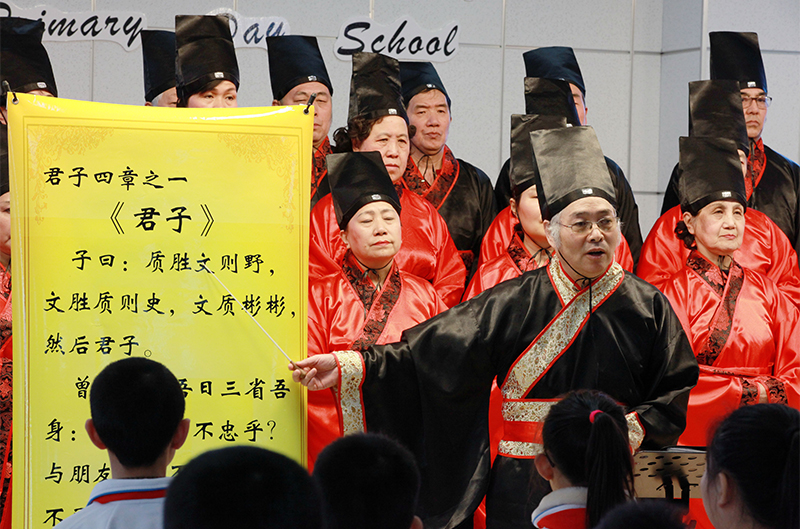 Primary Day School
君子四章之一
《君子》
子曰：质胜文则野，
文胜质则史，文质彬彬，
然后君子。
曾 吾日三省吾
身： 不忠乎？
与朋